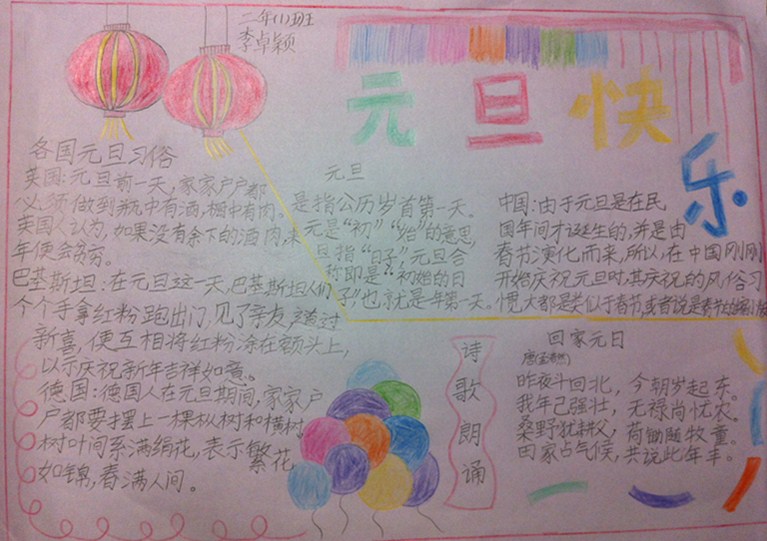 二年(1)班
李卓颖
元旦快
乐
各国元旦习俗
英国:元旦前一天,家家户户都
必须做到瓶中有酒,橱中有肉。
英国人认为,如果没有余下的酒肉,来
年便会贫穷。
巴基斯坦:在元旦这一天,巴基斯坦人们
个个手拿红粉跑出门,见了亲友,道过
新喜,便互相将红粉涂在额头上,
以示庆祝新年吉祥如意。
德国:德国人在元旦期间,家家户
户都要摆上一棵枞树和横树,
树叶间系满绢花,表示繁花
如锦,春满人间。
元旦
是指公历岁首第一天。
元是“初”“始”的意思,
旦指“日子”,元旦合
称即是“初始的日
子”也就是一年第一天。
中国:由于元旦是在民
国年间才诞生的,并是由
春节演化而来,所以,在中国刚刚
开始庆祝元旦时,其庆祝的风俗习
惯大都是类似于春节,或者说是春节的缩小版
诗
歌
朗
诵
回家元日
唐(孟浩然)
昨夜斗回北,今朝岁起东。
我年已强壮,无禄尚忧农。
桑野犹耕父,荷锄随牧童。
田家占气候,共说此年丰。